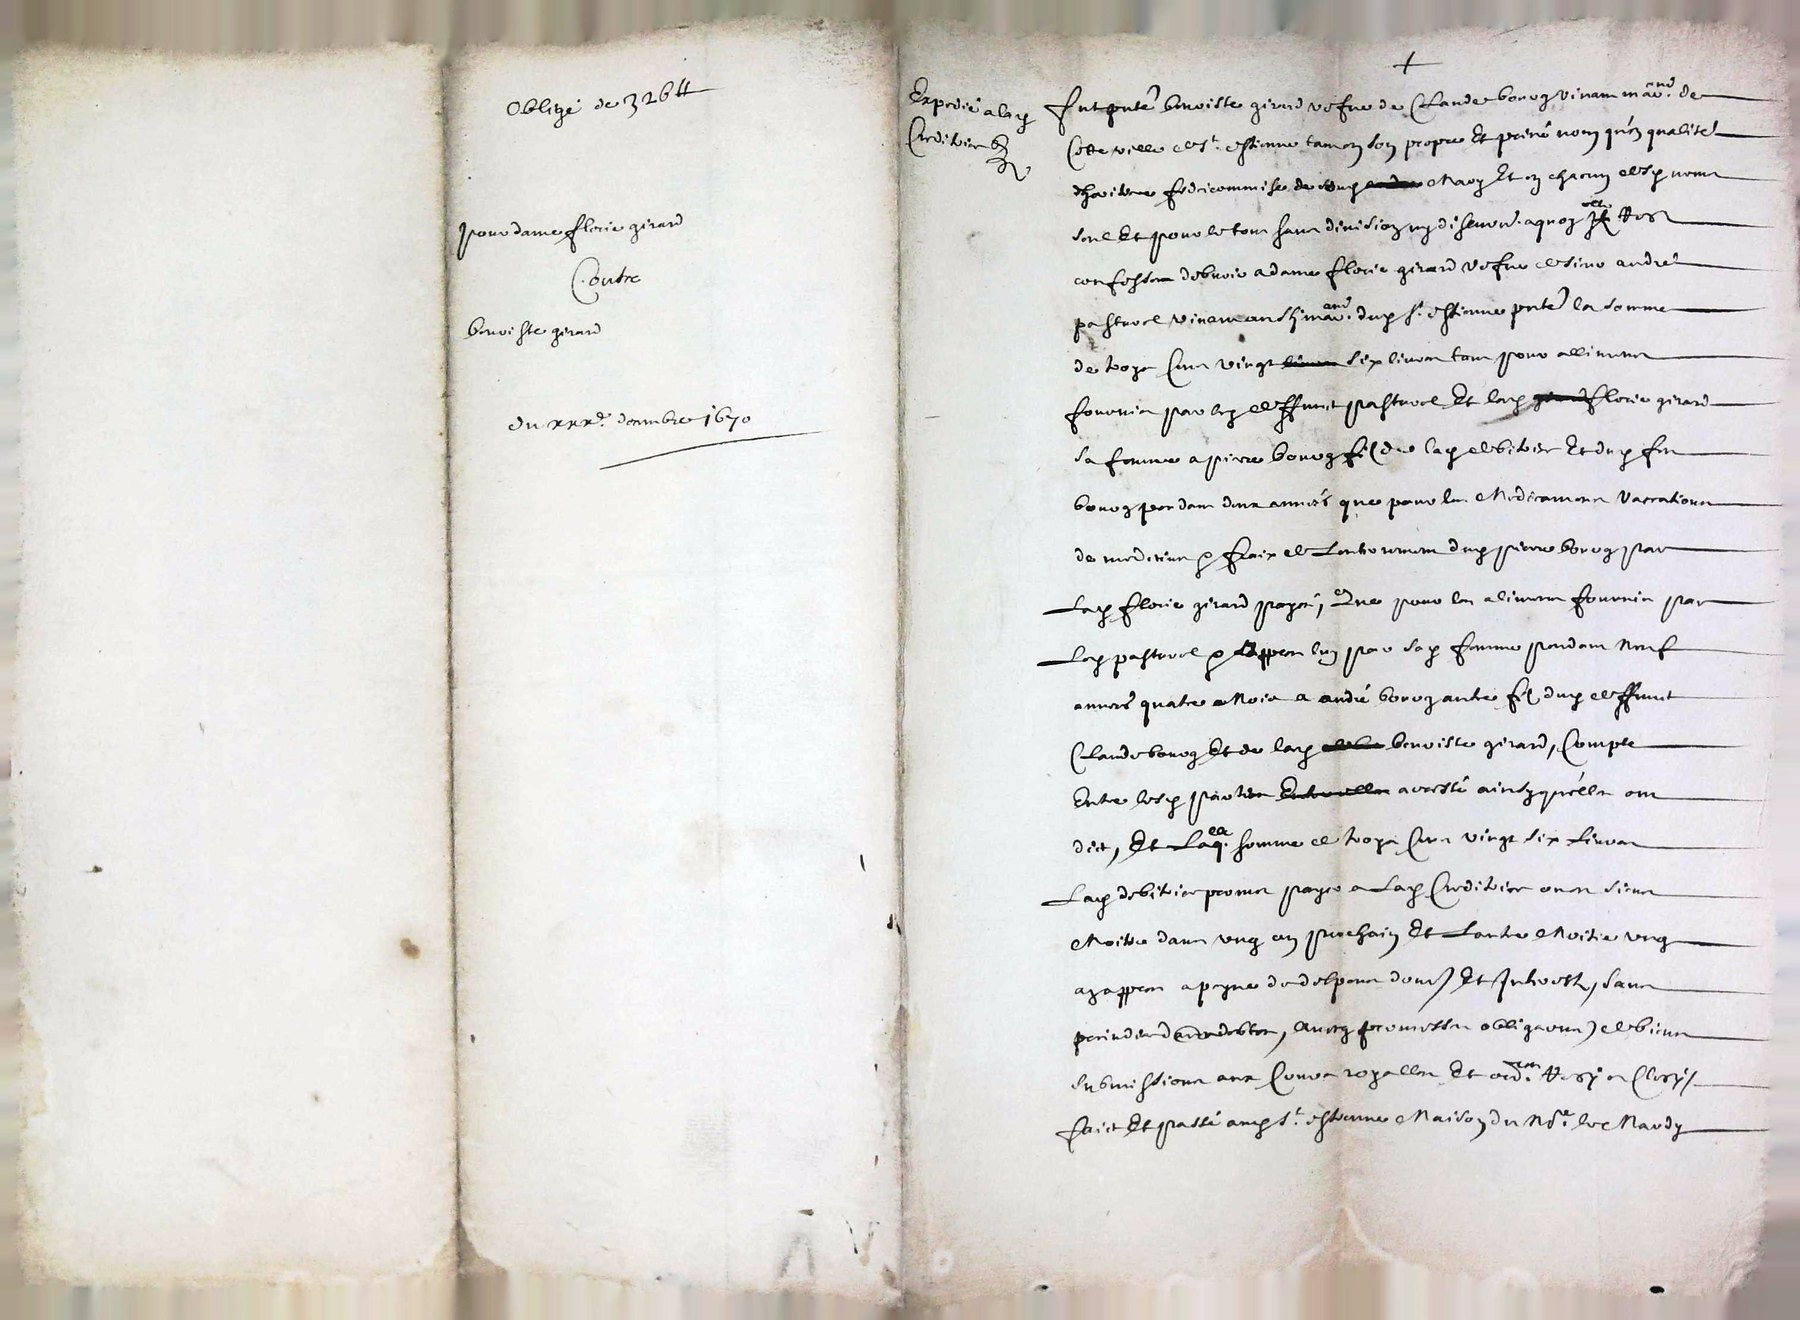 Oblige de 326 tt
pour dame florie girard
Contre
benoiste girard
du xxxe decembre 1670
Expedié a lad
Creditrice
+
fut pnte benoiste girard vefue de Claude bourg vivant mar.and de
Cette ville de St estienne tant en son propre Et privé nom qu'en qualité
d'heritiere fideicommise de dud Mary Et en chacun desd noms
seul Et pour le tout sans division ny discution. a quoy
confesse debvoir a dame florie girard vefue de sieur andré
pasturel vivant aussy mar.and dud St estienne pnte la somme
de trois Cent vingt six livres tant pour alliments
fournis par led deffunct pasturel Et lad florie girard
sa femme a pierre bourg fils de lad debitrice Et dud feu
bourg pendant deux années que pour les Medicaments Vaccations
de medecins & fraix de Lenterrement dud pierre bourg par
Lad florie girard payés, Que pour les aliments fournis par
Led pasturel & appres luy par sad femme pendant Neuf
années quatre Mois a andré bourg autre fils dud deffunct
Claude bourg Et de lad benoiste girard, Compte
Entre lesd parties arresté ainsy qu'elles ont
dict, Et Laq.lle somme de trois Cent vingt six Livres
Lad debitrice promet payer a Lad Creditrice ou es siens
Moitie dans ung an prochain Et Lautre Moitie ung
an appres a peyne de despens dom) Et Interest, sans
, avecq promesses obligaons) de biens
submissions aux Cours royalles Et ord.res
faict Et passé aud St estienne Maison du Nore le Mardy